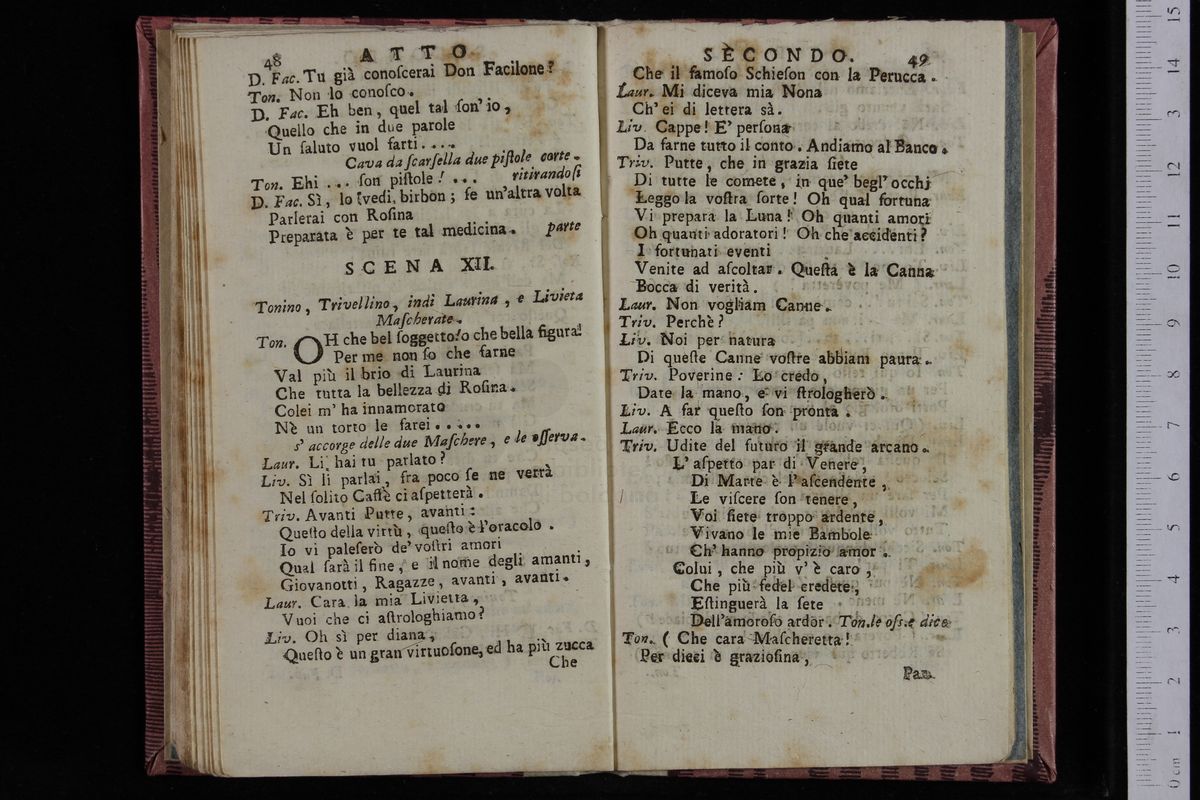 48 ATTO
D. Fac. Tu già conoſcerai Don Facilone?
Ton. Non lo conoſco.
D. Fac. Eh ben, quel tal ſon' io,
Quello che in due parole
Un ſaluto vuol farti.....
Cava da ſcarſella due piſtole corte.
Ton. Ehi ... ſon piſtole! ... ritirandoſi
D. Fac. Sì, lo vedi, birbon; ſe un'altra volta
Parlerai con Roſina
Preparata è per te tal medicina. parte
SCENA XII.
Tonino, Trivellino, indi Laurina, e Livieta
Maſcherate.
Ton. OH che bel ſoggetto! o che bella figura!
Per me non ſo che farne
Val più il brio di Laurina
Che tutta la bellezza di Roſina.
Colei m' ha innamorato
Nè un torto le farei.....
s' accorge delle due Maſchere, e le oſſerva.
Laur. Li hai tu parlato?
Liv. Sì li parlai, fra poco ſe ne verrà
Nel ſolito Caffè ci aſpetterà.
Triv. Avanti Putte, avanti:
Queſto della virtù, queſto è l'oracolo.
Io vi paleſerò de' voſtri amori
Qual ſarà il fine, e il nome degli amanti,
Giovanotti, Ragazze, avanti, avanti.
Laur. Cara la mia Livietta,
Vuoi che ci aſtrologhiamo?
Liv. Oh sì per diana,
Queſto è un gran virtuoſone, ed ha più zucca
Che
SECONDO. 49
Che il famoſo Schieſon con la Perucca.
Laur. Mi diceva mia Nona
Ch' ei di lettera sà.
Liv Cappe! E' perſona
Da farne tutto il conto. Andiamo al Banco.
Triv. Putte, che in grazia ſiete
Di tutte le comete, in que' begl' occhi
Leggo la voſtra ſorte! Oh qual fortuna
Vi prepara la Luna! Oh quanti amori
Oh quanti adoratori! Oh che accidenti?
I fortunati eventi
Venite ad aſcoltar. Queſta è la Canna
Bocca di verità.
Laur. Non vogliam Canne.
Triv. Perchè?
Liv. Noi per natura
Di queſte Canne voſtre abbiam paura.
Triv. Poverine: Lo credo,
Date la mano, e vi ſtrologherò.
Liv. A far queſto ſon pronta.
Laur. Ecco la mano.
Triv. Udite del futuro il grande arcano.
L' aſpetto par di Venere,
Di Marte è l' aſcendente,
Le viſcere ſon tenere,
Voi ſiete troppo ardente,
Vivano le mie Bambole
Ch' hanno propizio amor.
Colui, che più v' è caro,
Che più fedel credete,
Eſtinguerà la ſete
Dell'amoroſo ardor. Ton. le oſs. e dice
Ton. ( Che cara Maſcheretta!
Per dieci è grazioſina,